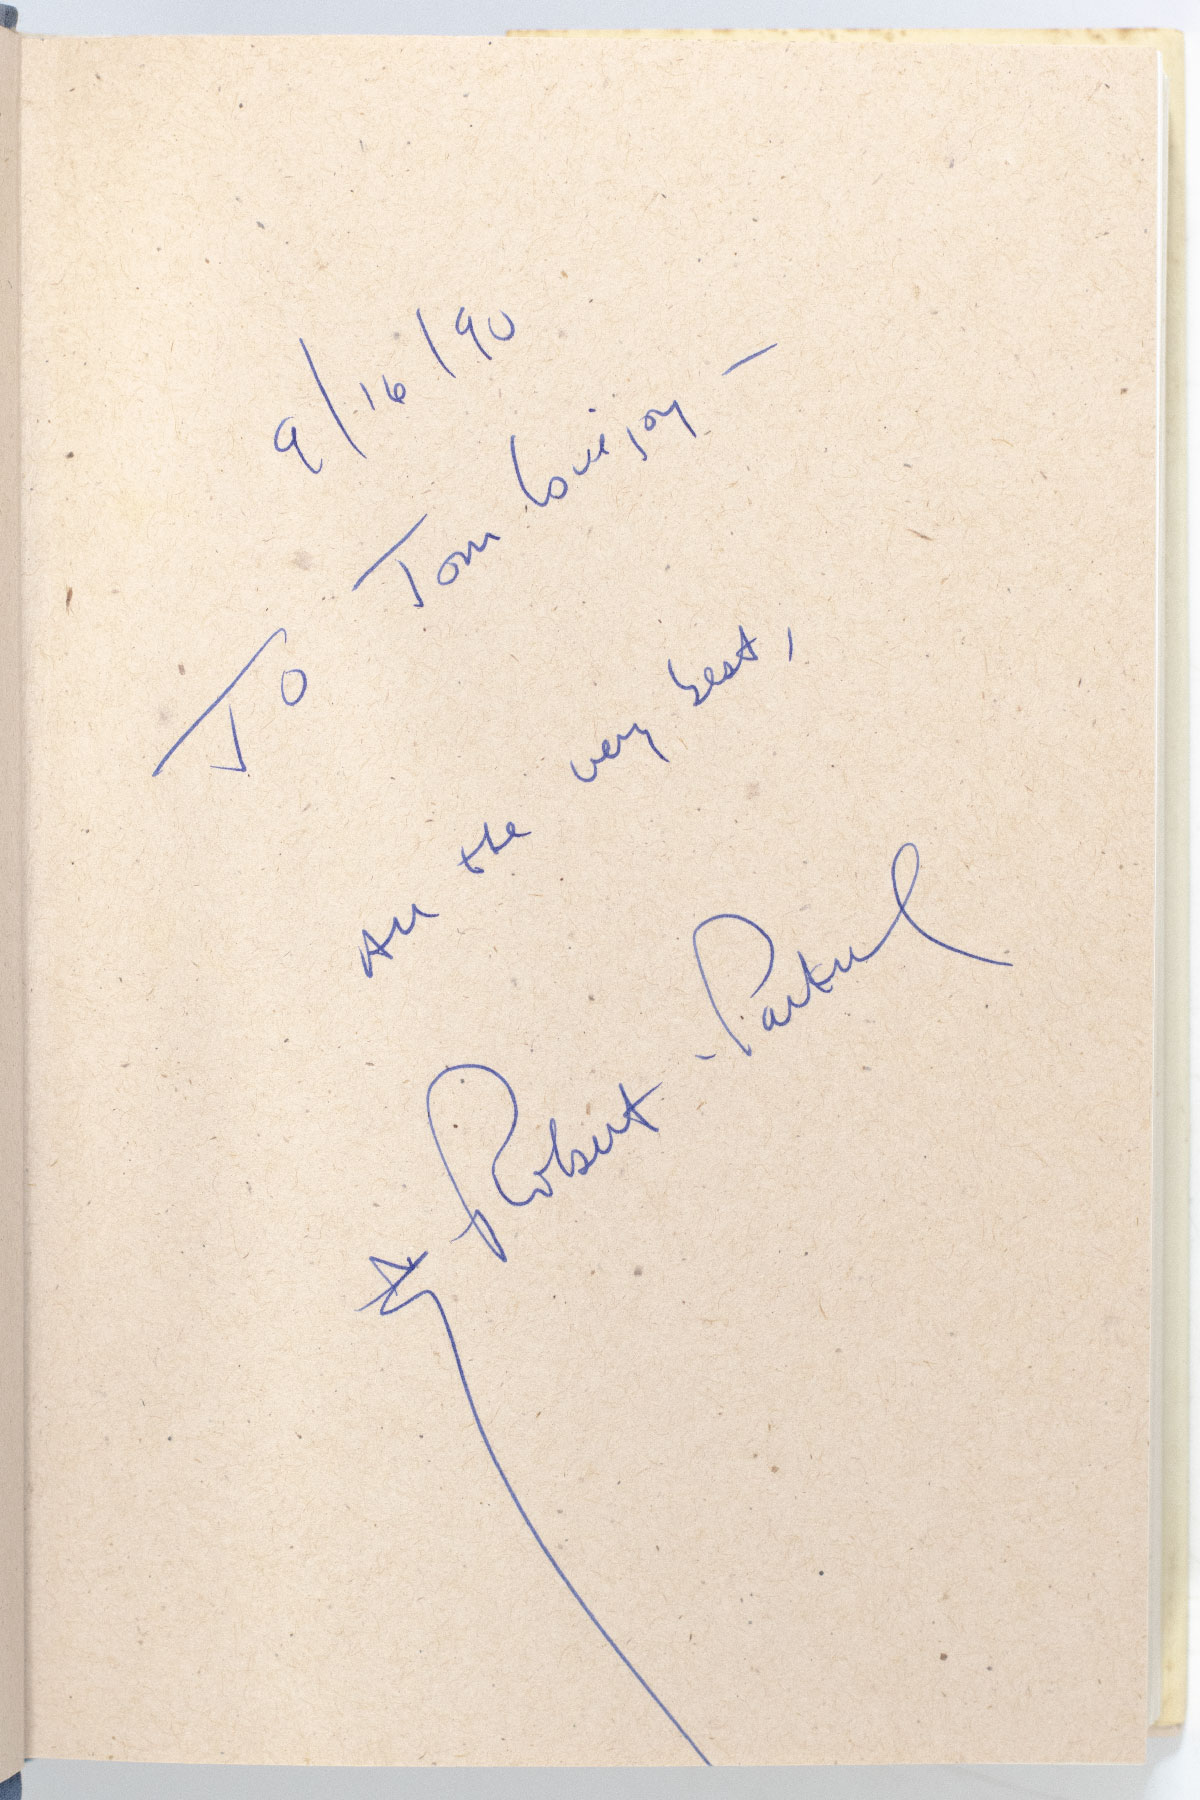 9/16/90
To Tom Lovejoy —
All the very best,
Robert